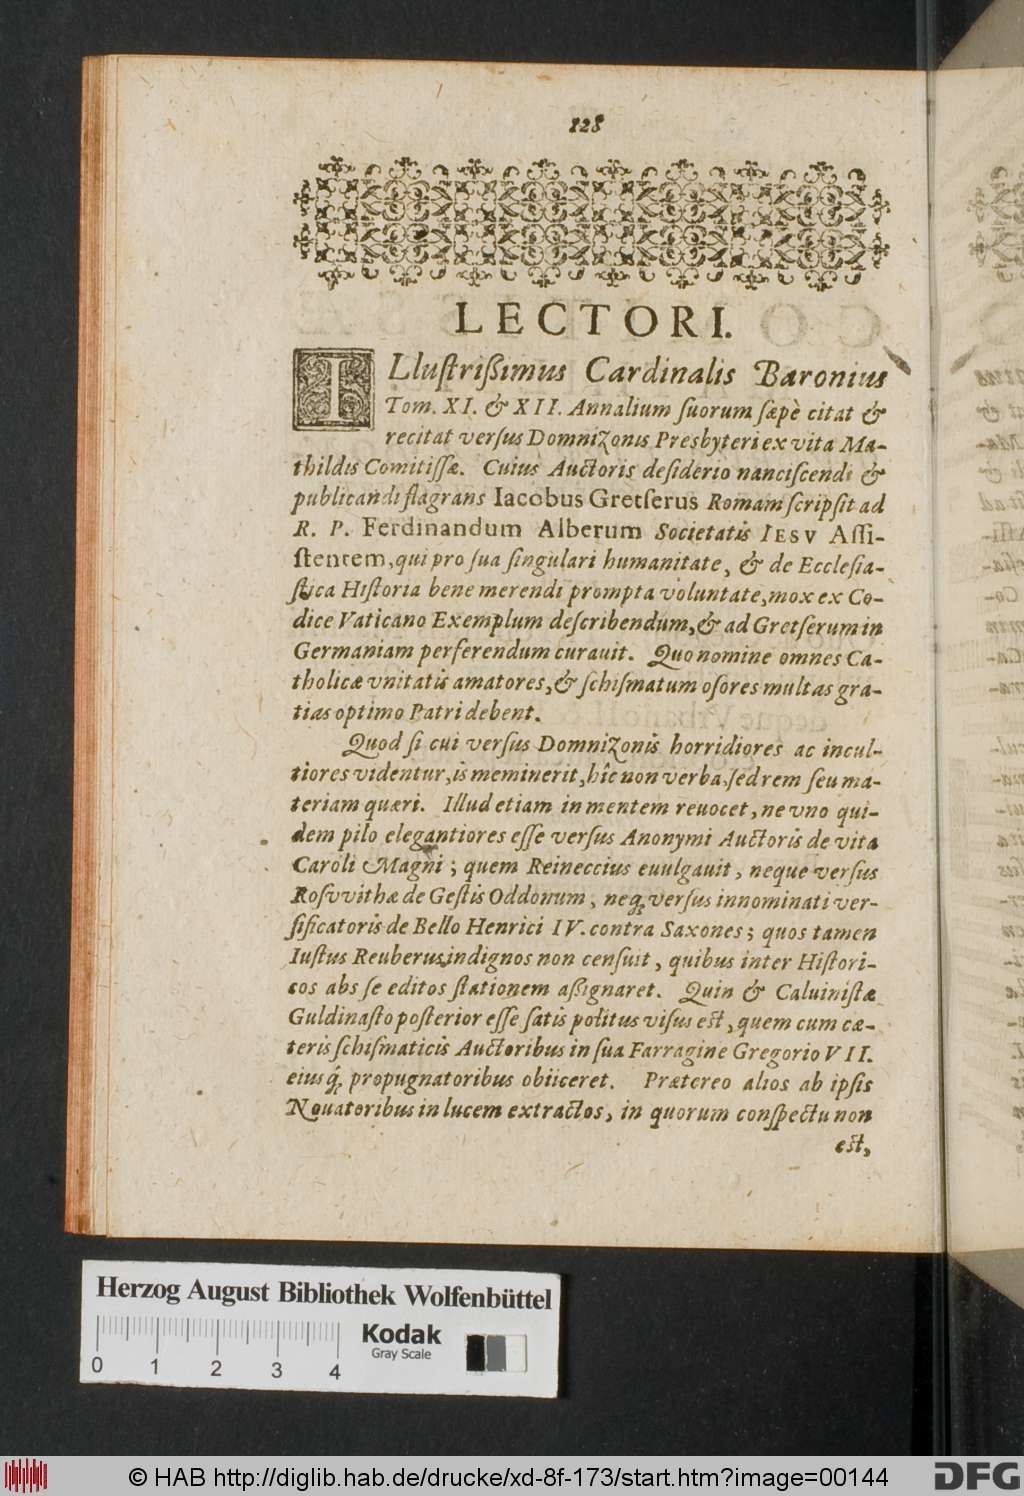 128
LECTORI.
ILluſtrißimus Cardinalis Baronius
Tom. XI. & XII. Annalium ſuorum ſæpè citat &
recitat verſus Domnizonis Presbyteri ex vita Ma-
thildis Comitiſſæ. Cuius Auctoris deſiderio nanciſcendi &
publicandi flagrans Iacobus Gretſerus Romam ſcripſit ad
R. P. Ferdinandum Alberum Societatis IESV Aſſi-
ſtentem, qui pro ſua ſingulari humanitate, & de Eccleſia-
ſtica Hiſtoria bene merendi prompta voluntate, mox ex Co-
dice Vaticano Exemplum deſcribendum, & ad Gretſerum in
Germaniam perferendum curauit. Quo nomine omnes Ca-
tholicæ vnitatis amatores, & ſchiſmatum oſores multas gra-
tias optimo Patri debent.
Quod ſi cui verſus Domnizonis horridiores ac incul-
tiores videntur, is meminerit, hîc non verba, ſed rem ſeu ma-
teriam quæri. Illud etiam in mentem reuocet, ne vno qui-
dem pilo elegantiores eſſe verſus Anonymi Auctoris de vita
Caroli Magni; quem Reineccius euulgauit, neque verſus
Roſvvithæ de Geſtis Oddonum, neq; verſus innominati ver-
ſificatoris de Bello Henrici IV. contra Saxones; quos tamen
Iuſtus Reuberus indignos non cenſuit, quibus inter Hiſtori-
cos abs ſe editos ſtationem aßignaret. Quin & Caluiniſtæ
Guldinaſto poſterior eſſe ſatis politus viſus eſt, quem cum cæ-
teris ſchiſmaticis Auctoribus in ſua Farragine Gregorio VII.
eiusq́; propugnatoribus obiiceret. Prætereo alios ab ipſis
Nouatoribus in lucem extractos, in quorum conſpectu non
eſt,
Herzog August Bibliothek Wolfenbüttel
0 1 2 3 4
Kodak
Gray Scale
© HAB http://diglib.hab.de/drucke/xd-8f-173/start.htm?image=00144
DFG